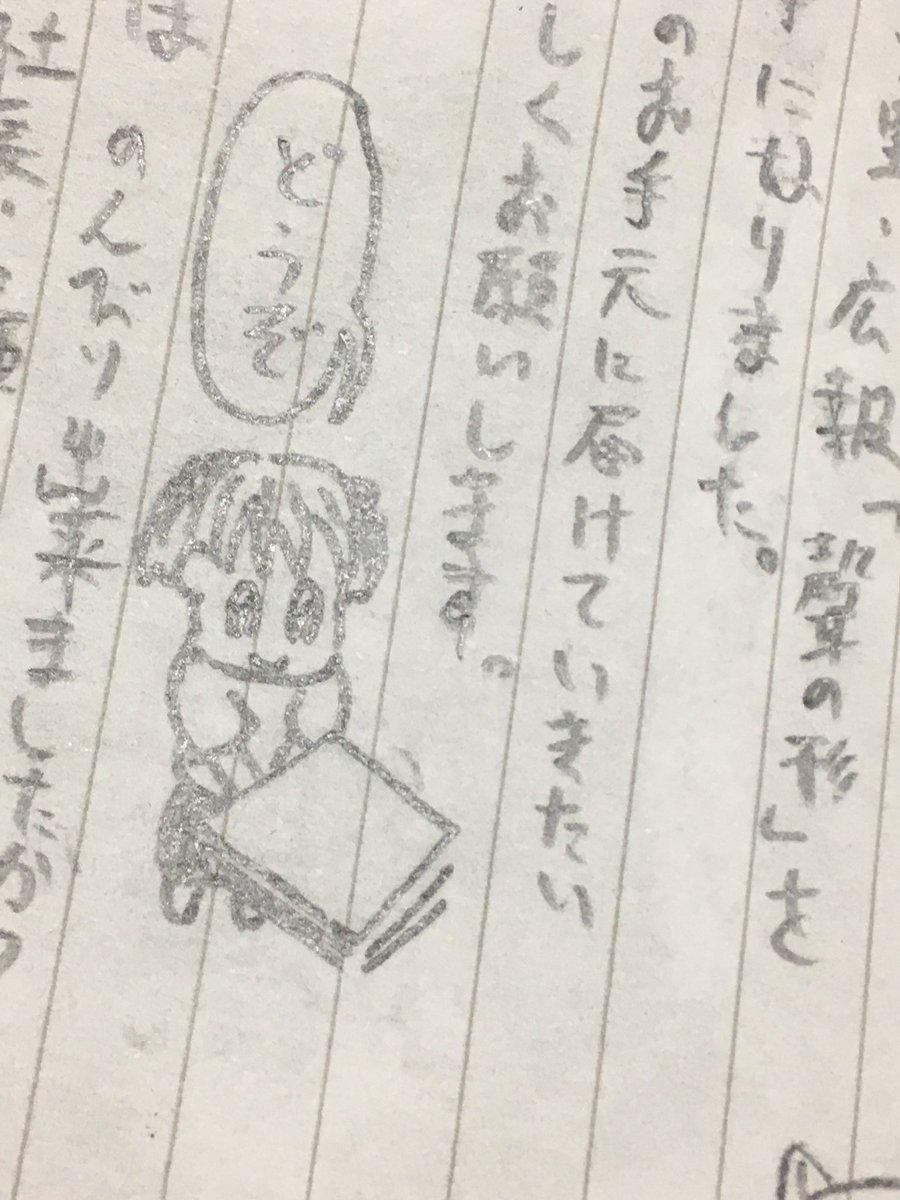 ・広報「聲の形」を
になりました。
のお手元に届けていきたい
しくお願いします。
どうぞ
は
のんびり出来ましたか
社